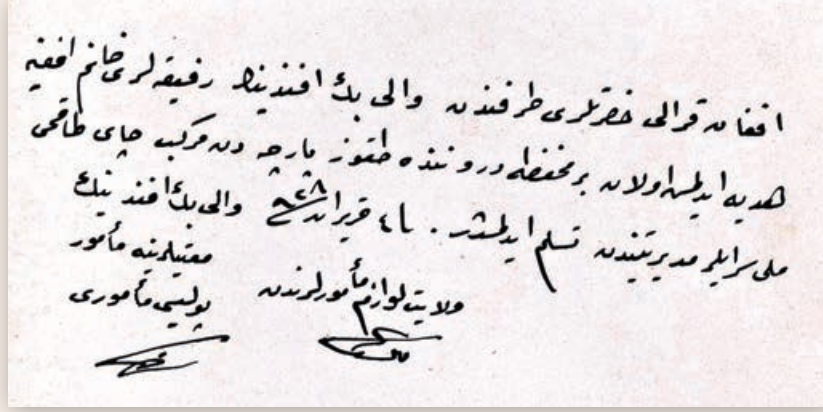 افغان قرالی حضرتلری طرفندن والی بك افندینك رفیقه لری خانم افندیه
هدیه ایدلمش اولان بر محفظه درونندە طقوز پارچه دن مركب چای طاقمی
ملی سرایلر مدیریتندن تسلم ایدلمشدر . ٤ حزیران ٩٢٨ والی بك افندینك
معیتلرینه مأمور
ولایت لوازم مأمورلرندن پولیس مأموری